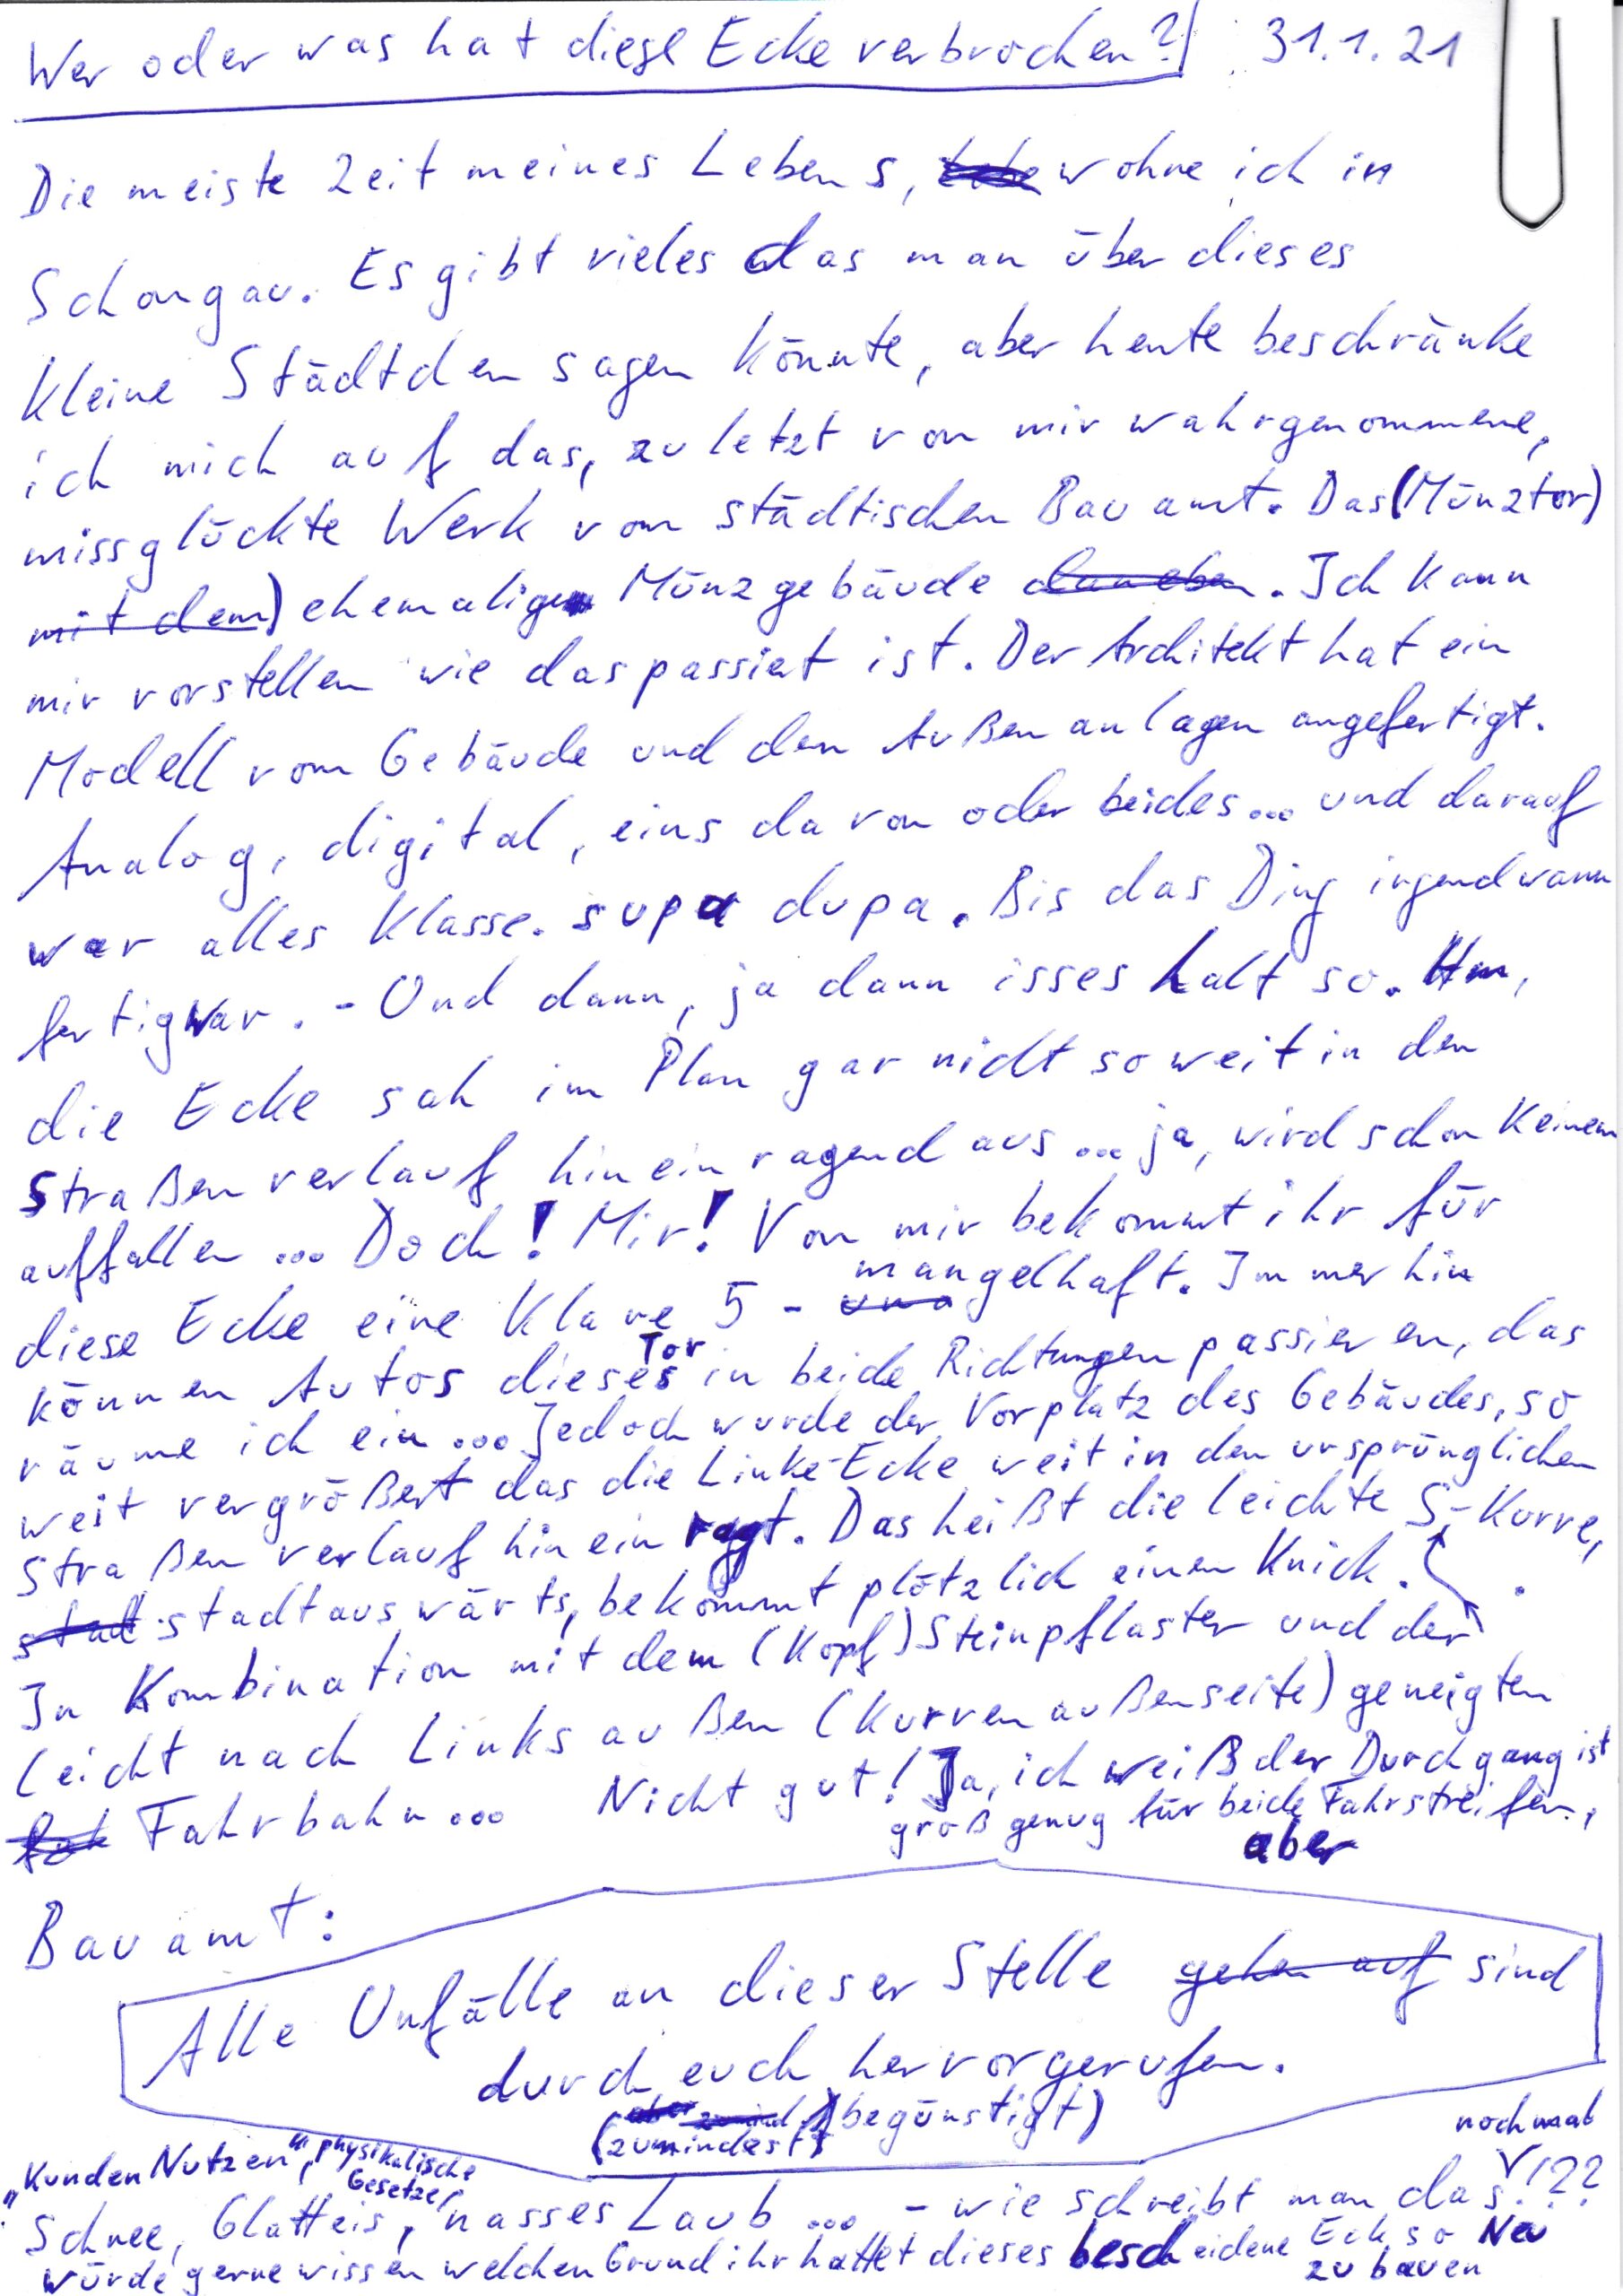 Wer oder was hat diese Ecke verbrochen?! 31.1.21
Die meiste Zeit meines Lebens, lebe wohne ich in
Schongau. Es gibt vieles das man über dieses
kleine Städtchen sagen könnte, aber heute beschränke
ich mich auf das, zuletzt von mir wahrgenommene,
missglückte Werk vom städtischen Bauamt. Das (Münztor)
mit dem) ehemalige Münzgebäude daneben. Ich kann
mir vorstellen wie das passiert ist. Der Architekt hat ein
Modell vom Gebäude und den Außenanlagen angefertigt.
Analog, digital, eins davon oder beides... und darauf
war alles Klasse. supa dupa. Bis das Ding irgendwann
fertig war. - Und dann, ja dann isses halt so. Hm,
die Ecke sah im Plan gar nicht so weit in den
Straßenverlauf hineinragend aus ... ja, wird schon keinem
auffallen ... Doch! Mir! Von mir bekommt ihr für
diese Ecke eine Klare 5 - mangelhaft. Immerhin
können Autos dieses Tor in beide Richtungen passieren, das
räume ich ein ... Jedoch wurde der Vorplatz des Gebäudes, so
weit vergrößert das die Linke-Ecke weit in den ursprünglichen
Straßenverlauf hinein ragt. Das heißt die leichte S-Kurve,
stadt stadtauswärts, bekommt plötzlich einen Knick.
In Kombination mit dem (Kopf)Steinpflaster und der
leicht nach Links außen (Kurvenaußenseite) geneigten
Fahrbahn... Nicht gut! Ja, ich weiß der Durchgang ist
groß genug für beide Fahrstreifen.,
aber
Bauamt:
Alle Unfälle an dieser Stelle gehen auf sind
durch euch hervorgerufen.
(zumindest begünstigt)
"Kunden Nutzen", physikalische
Gesetze,
nochmal
Schnee, Glatteis, nasses Laub ... - wie schreibt man das!??
würde gerne wissen welchen Grund ihr hattet dieses bescheidene Eck so Neu
zu bauen